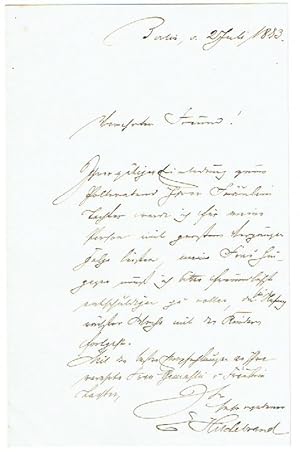 Berlin, d. 2 Juli 1883.
Verehrter Freund!
Ihrer gütigen Einladung zum
Polterabend Ihrer Fräulein
Tochter werde ich für meine
Person mit großem Vergnügen
Folge leisten, meine Frau hin-
gegen muß ich bitte freundlichst
entschuldigen zu wollen, da Anfang
nächster Woche mit den Kindern
fortgeht.
Mit den besten Empfehlungen an Ihre
verehrte Frau Gemahlin u. Fräulein
Tochter,
Ihr
ergebener
E Hildebrand